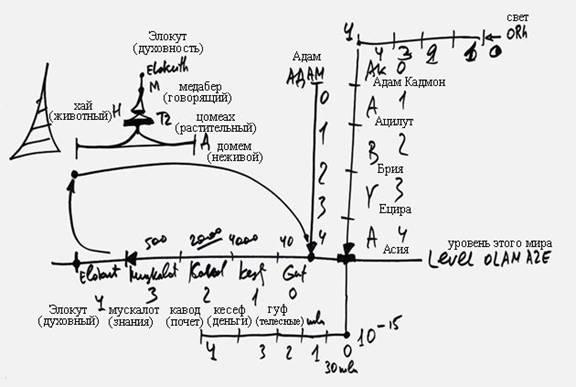 Элокут
(духовность)
Elokuth
M
медабер
(говорящий)
хай
(животный)
H
TZ
цомеах
(растительный)
Д
домем
(неживой)
Адам
АДАМ
0
1
2
3
4
свет
ORh
4 3 2 1 0
AK 0
Адам Кадмон
A 1
Ацилут
B 2
Брия
Y 3
Ецира
A 4
Асия
уровень этого мира
Level OLAM AZE
500 2000 4000 40
Elokut Muskalot Kavod kesf Guf
4 3 2 1 0
Элокут
(духовный)
мускалот
(знания)
кавод
(почет)
кесеф
(деньги)
гуф
(телесные)
4 3 2 1 0
10-15